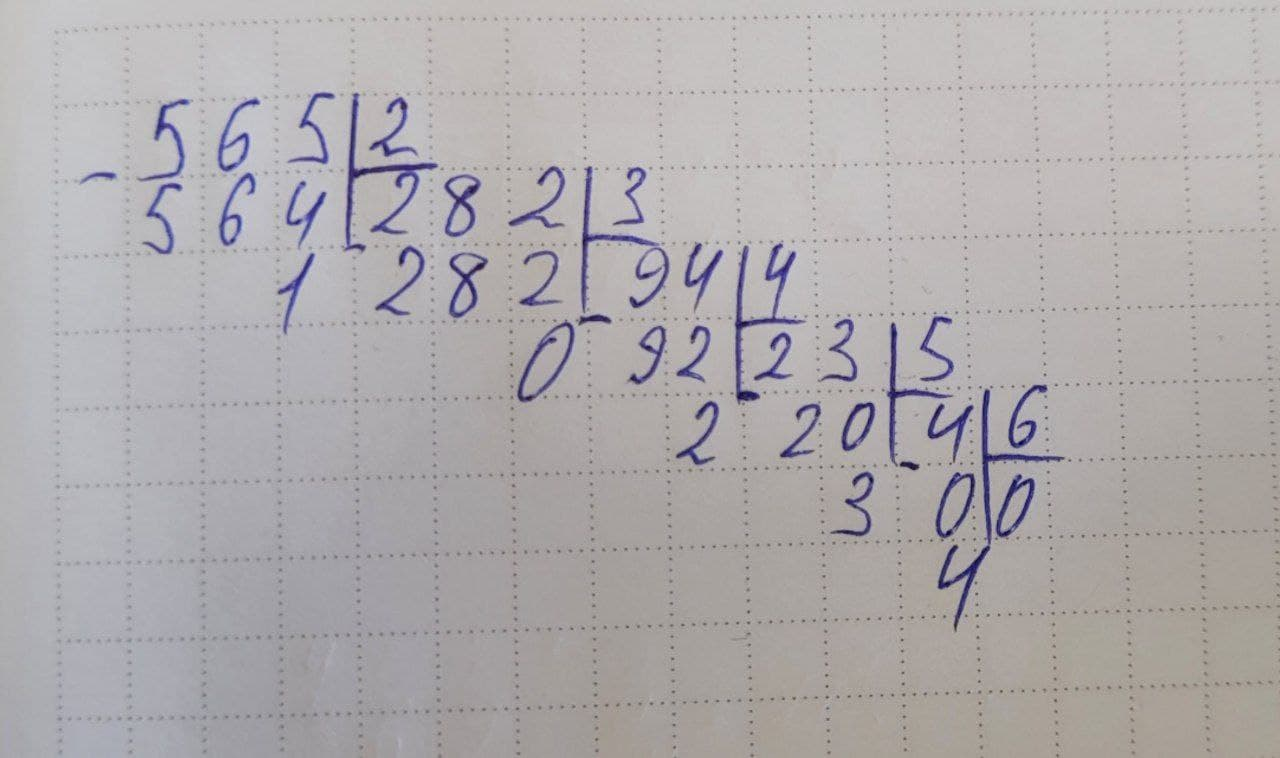 - 5 6 5 | 2
5 6 4 | 2 8 2 | 3
1 - 2 8 2 | 9 4 | 4
0 - 9 2 | 2 3 | 5
2 - 2 0 | 4 | 6
3 - 0 | 0
4